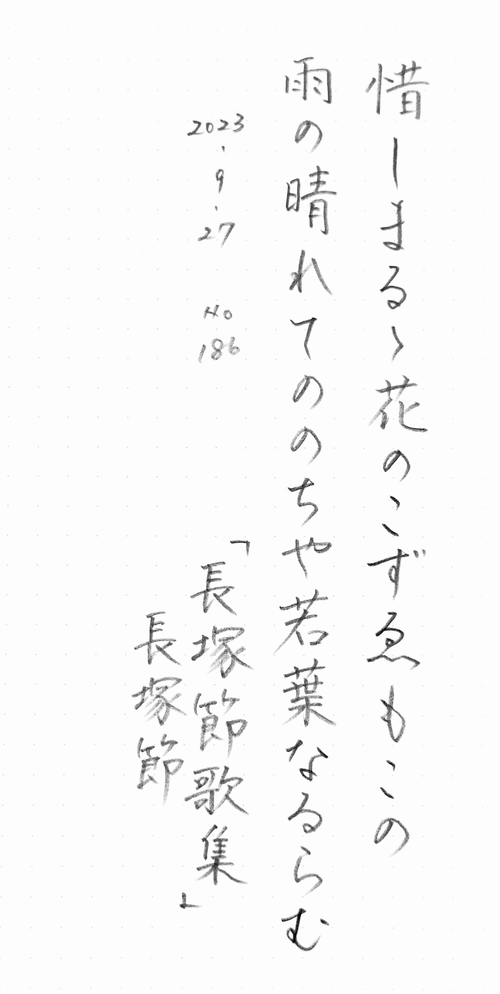 惜しまるゝ花のこずゑもこの
雨の晴れてののちや若葉なるらむ
2023.9.27 No 186
「長塚節歌集」
長塚節